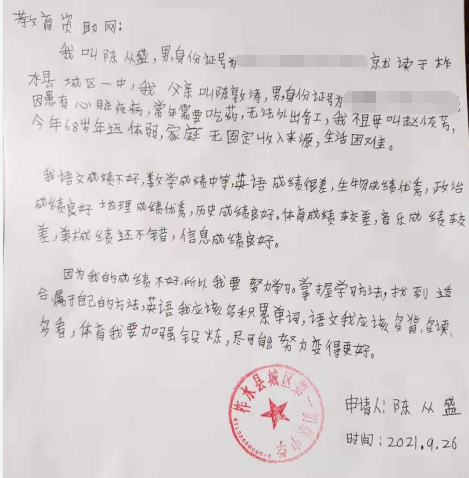 教育资助网:
我叫陈从盛,男,身份证号为 就读于柞
水县城区一中,我父亲叫陈敦涛,男,身份证号为
因患有心脏疾病,常年需要吃药,无法外出务工,我祖母叫赵依芳,
今年68岁年迈体弱,家庭无固定收入来源,生活困难。
我语文成绩不好,数学成绩中等,英语成绩很差,生物成绩优秀,政治
成绩良好 地理成绩优秀,历史成绩良好。体育成绩较差,音乐成绩较
差,美术成绩还不错,信息成绩良好。
因为我的成绩不好,所以我要努力学习 掌握学习方法,找到适
合属于自己的方法,英语我应该多积累单词,语文我应该多背,多读,
多看,体育我要加强锻炼,尽可能努力变得更好。
柞水县城区第一初级中学
申请人:陈从盛
时间:2021.9.26